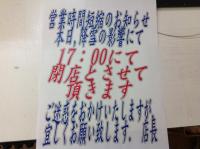 営業時間短縮のお知らせ
本日、降雪の影響にて
17:00にて
閉店とさせて
頂きます
ご迷惑をおかけいたしますが
宜しくお願い致します. 店長